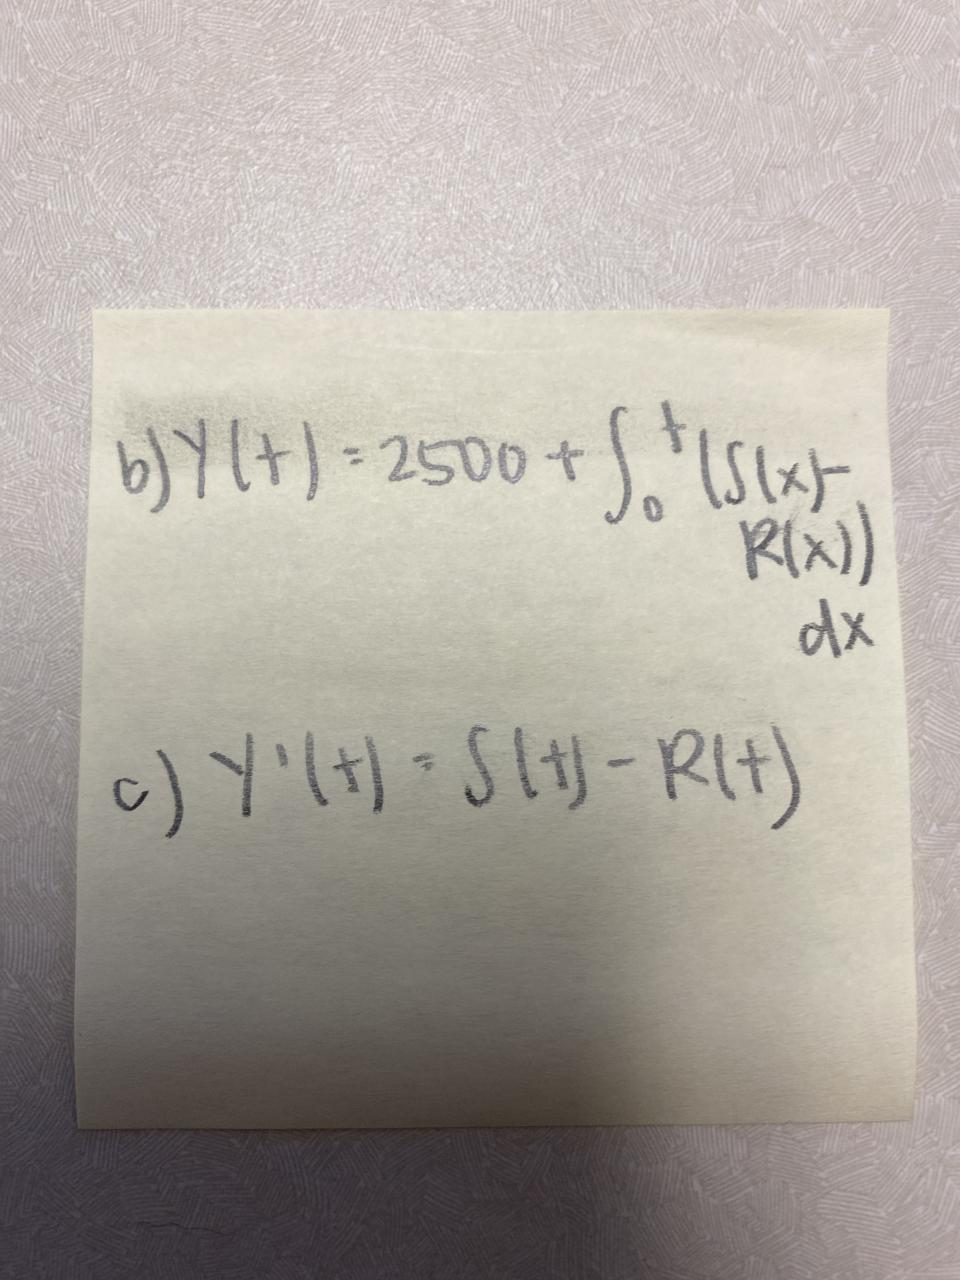 b) Y(t) = 2500 + ∫₀ᵗ (S(x)-
R(x))
dx
c) Y'(t) = S(t) - R(t)